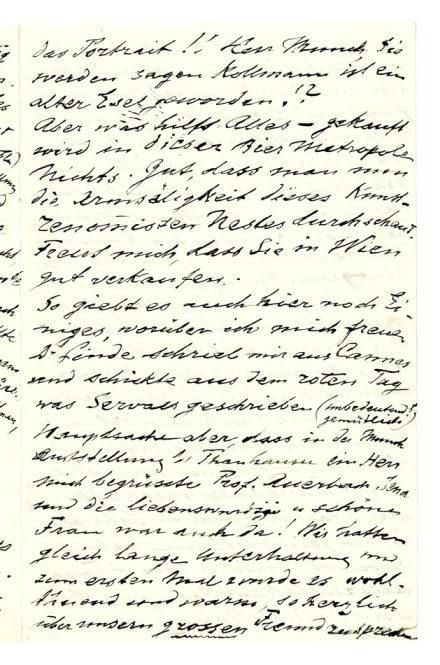 das Portrait!! Herr Munch Sie
werden sagen Kollmann ist ein
alter Esel geworden!?
Aber was hilft Alles – gekauft
wird in dieser Bier Metropole
Nichts. Gut, dass man nun
die Armseligkeit dieses Kunst-
renomisten Nestes durchschaut.
Freut mich, dass Sie in Wien
gut verkaufen.
So giebt es auch hier noch Ei-
niges, worüber ich mich freue
Dr Linde schrieb mir aus Cannes
und schickte aus dem roten Tag
was Servaes geschrieben (unbedeutend!,
gemütlich)
Hauptsache aber, dass in der Munch
Ausstellung b/ Thanhauser ein Herr
mich begrüsste Prof. Auerbach. Jena
und die liebenswürdige u schöne
Frau war auch da! Wir hatten
gleich lange Unterhaltung und
zum ersten Mal wurde es wohl-
tuend und warm, so herzlich
über unsern grossen Freund zu sprechen